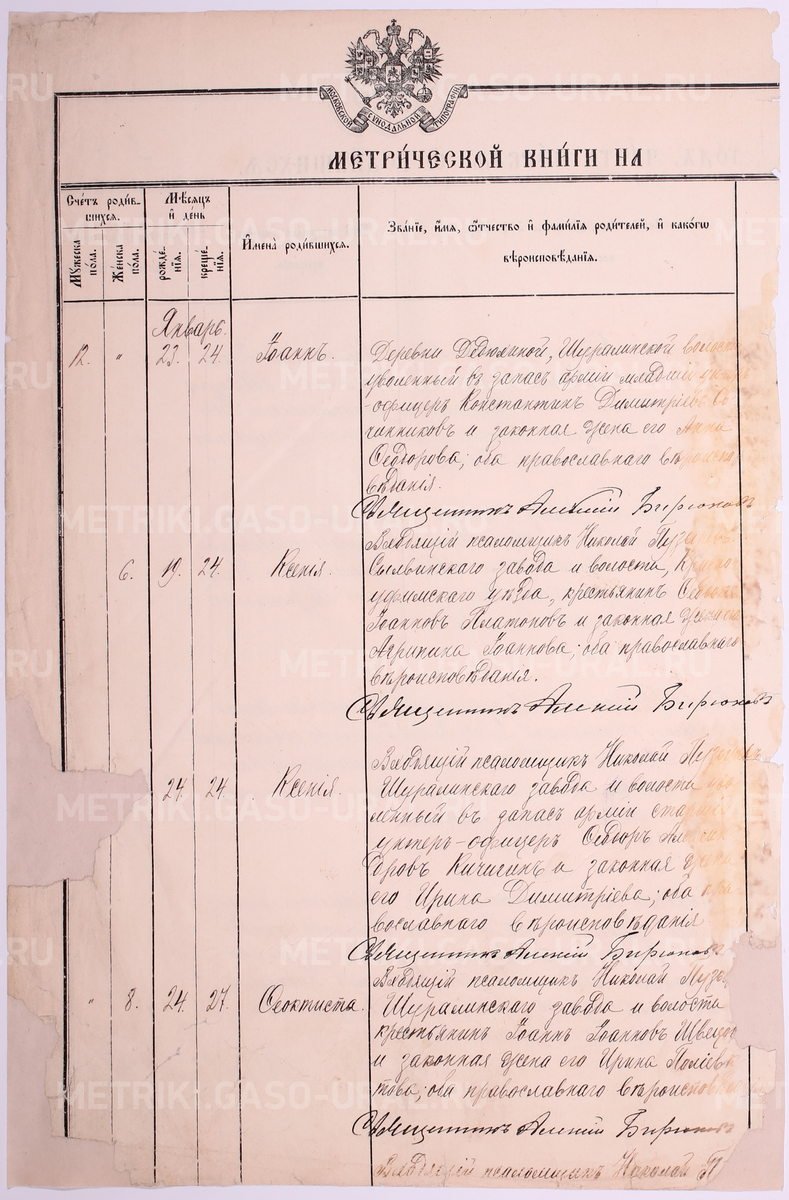 МОСКОВСКОЙ СѴНОДАЛЬНОЙ ТИПОГРАФІИ
МЕТРИ́ЧЕСКОЙ КНИ́ГИ НА
Сче́тъ роди́в-
шихся.
Мꙋ́жеска
по́ла.
Же́нска
по́ла.
Мѣ́сяцъ
и̂ де́нь
рожде́-
нїѧ.
креще́-
нїѧ.
И̂мена̀ роди́вшихся.
Зва́нїе, и́мѧ, ѻ҆́тчество и̂ фами́лїѧ роди́телей, и̂ како́гѡ
вѣроисповѣ́данїѧ.
Январь.
12. " 23. 24. Іоаннъ.
Деревни Дедюхиной, Шуралинской волости
уволенный въ запасъ арміи младшій унтеръ
-офицеръ Константинъ Димитріевъ
и законная жена его Анна
Ѳеодорова; оба православнаго вѣроиспо-
вѣданія.
Священникъ Алексій Бирюковъ
6. 19. 24. Ксенія.
псаломщикъ Николай
Сылвинскаго завода и волости, Красно
уфимскаго уѣзда, крестьянинъ
Іоанновъ Платоновъ и законная жена его
Агрипина Іоаннова; оба православнаго
вѣроисповѣданія.
Священникъ Алексій Бирюковъ
24. 24. Ксенія.
псаломщикъ Николай
Шуралинскаго завода и волости уво-
ленный въ запасъ арміи старшій
унтеръ-офицеръ Ѳеодоръ Алексан-
дровъ Кичигинъ и законная жена
его Ирина Димитріева; оба пра
вославнаго вѣроисповѣданія
Священникъ Алексій Бирюковъ
" 8. 24. 27. Ѳеоктиста.
псаломщикъ Николай
Шуралинскаго завода и волости
крестьянинъ Іоаннъ Іоанновъ Швецовъ
и законная жена его Ирина Поліев-
това; оба православнаго
Священникъ Алексій Бирюковъ
псаломщикъ Николай П
METRIKI.GASO-URAL.RU